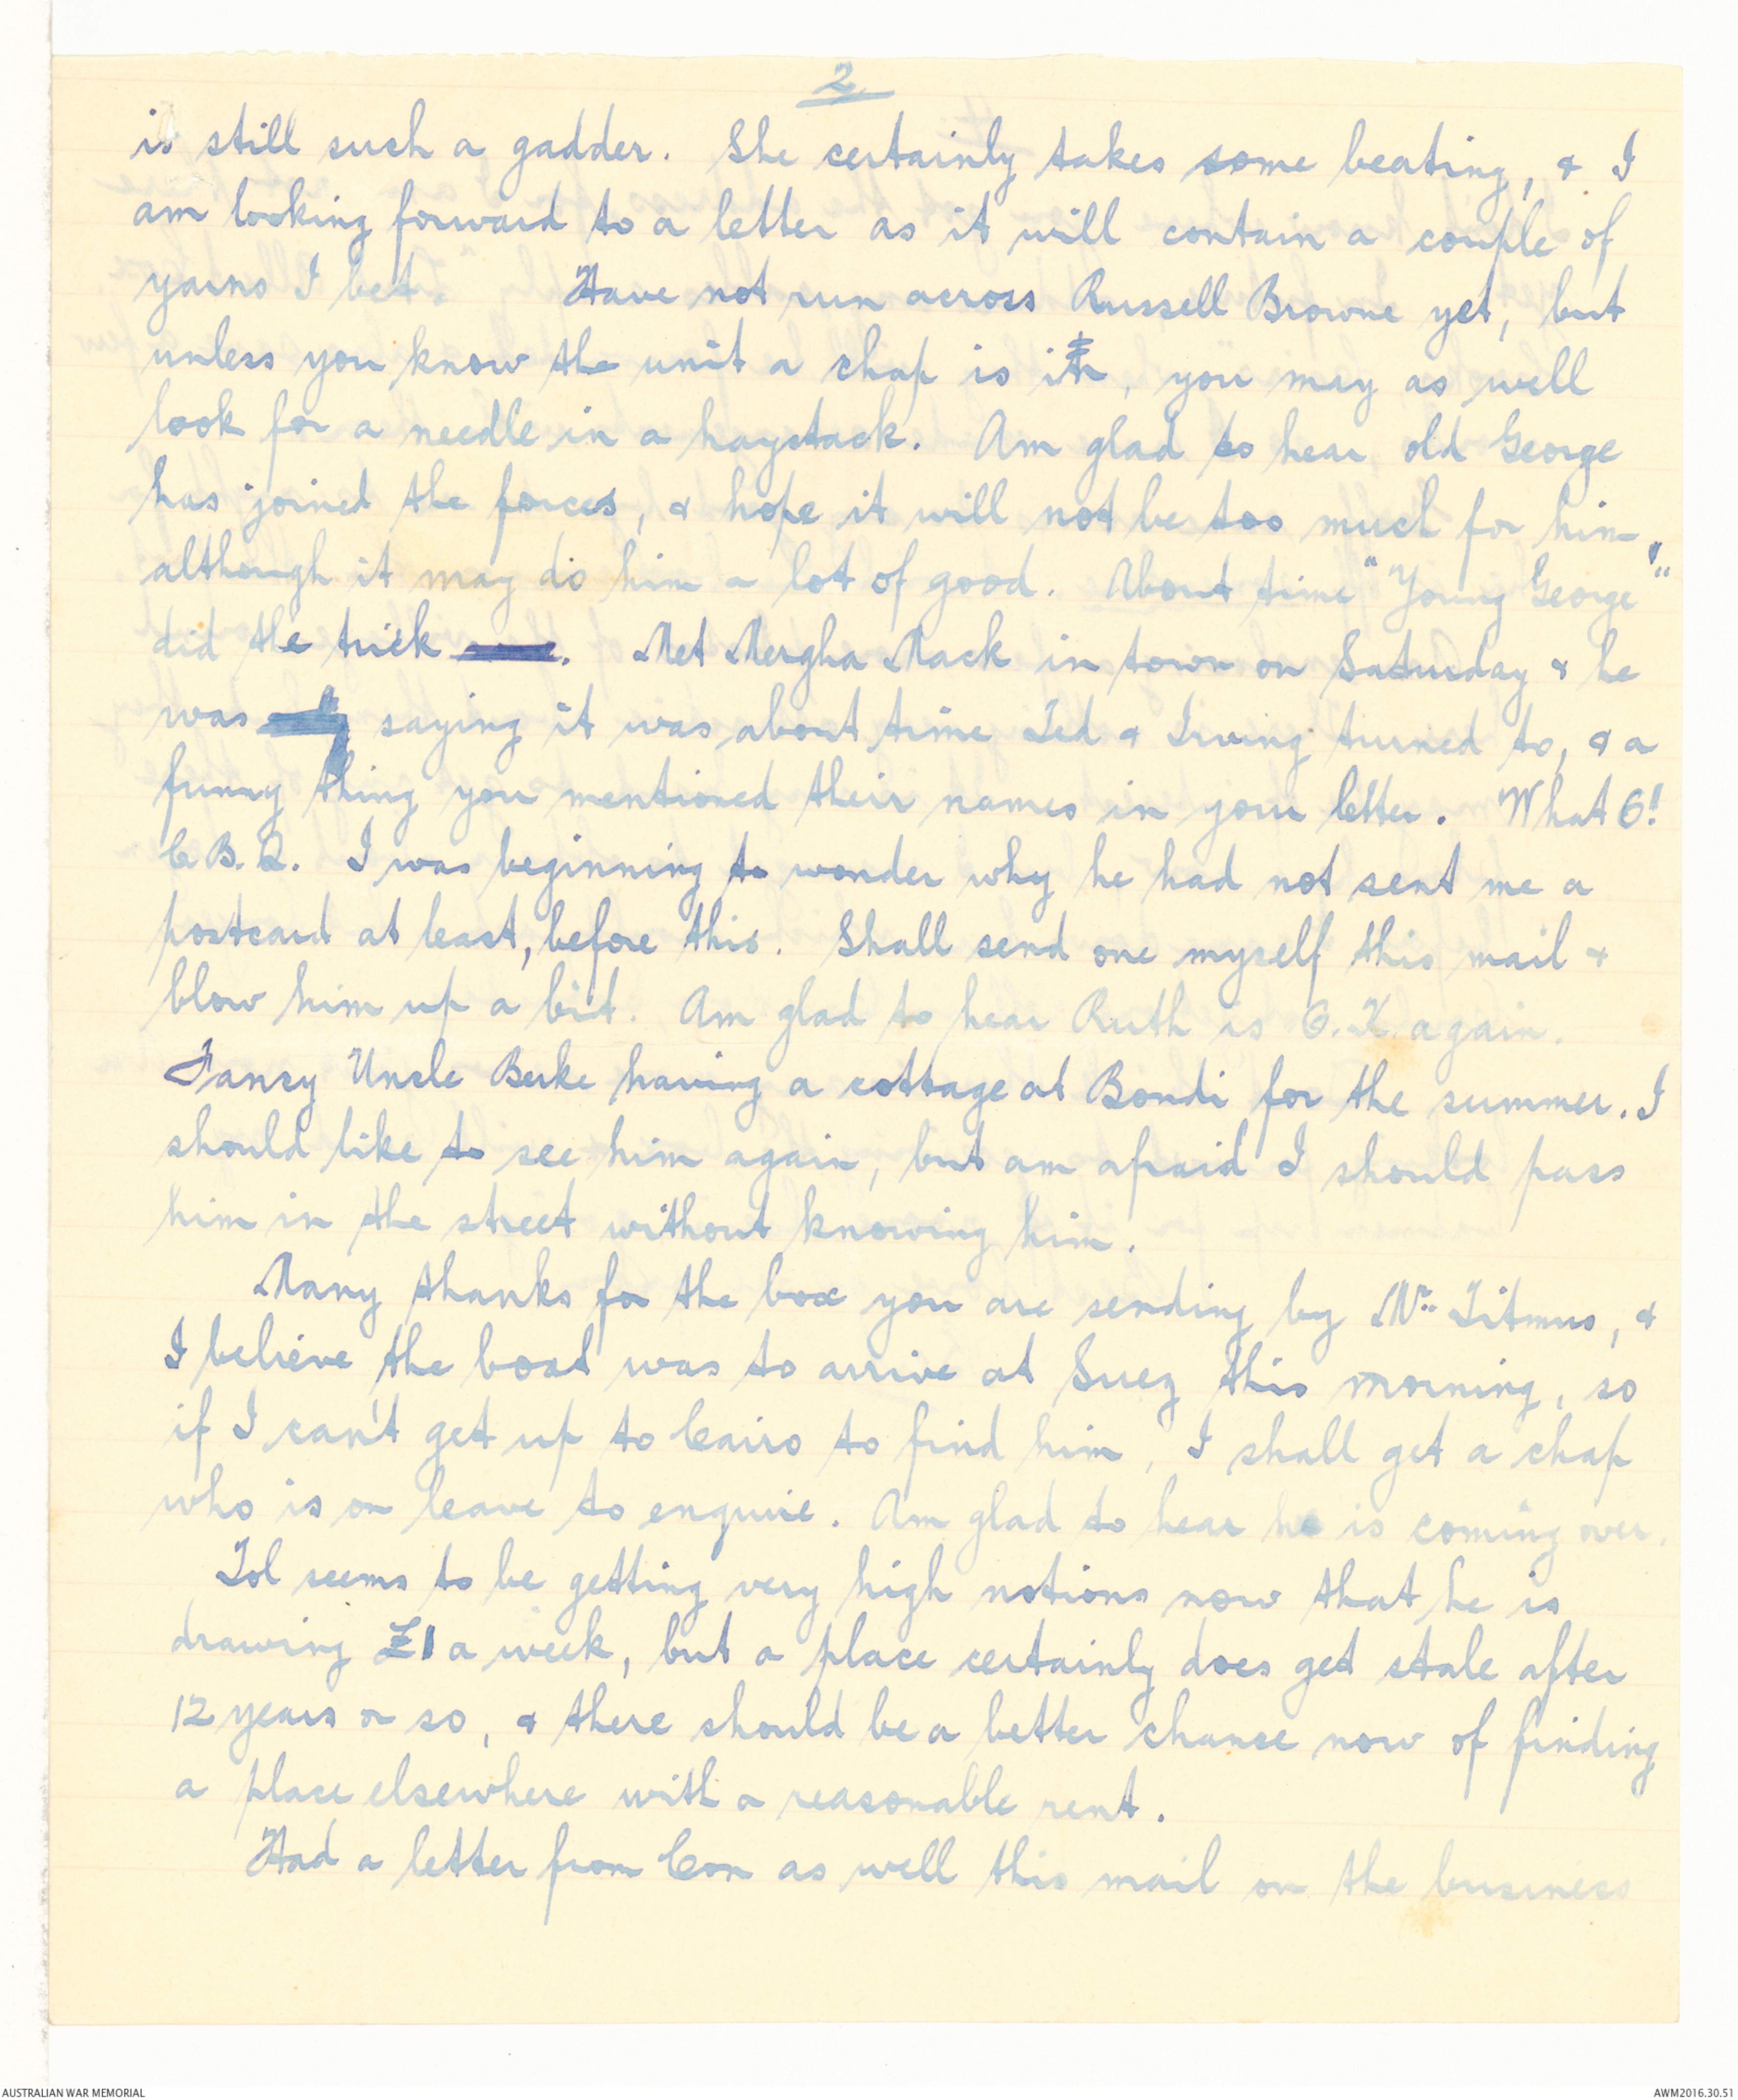 2
is still such a gadder. She certainly takes some beating, & I
am looking forward to a letter as it will contain a couple of
yarns I bet. Have not run across Russell Browne yet, but
unless you know the unit a chap is in, you may as well
look for a needle in a haystack. Am glad to hear old George
has joined the forces, & hope it will not be too much for him,
although it may do him a lot of good. About time "Young George"
did the trick. Met Mergha Mack in town on Saturday & he
was saying it was about time Ted & Irving turned to, & a
funny thing you mentioned their names in your letter. What O!
C.B.Q. I was beginning to wonder why he had not sent me a
postcard at least, before this. Shall send one myself this mail &
blow him up a bit. Am glad to hear Ruth is O.K. again.
Fancy Uncle Berke having a cottage at Bondi for the summer. I
should like to see him again, but am afraid I should pass
him in the street without knowing him.
Many thanks for the box you are sending by Mr. Titmus, &
I believe the boat was to arrive at Suez this morning, so
if I can't get up to Cairo to find him, I shall get a chap
who is on leave to enquire. Am glad to hear he is coming over.
Tol seems to be getting very high notions now that he is
drawing £1 a week, but a place certainly does get stale after
12 years or so, & there should be a better chance now of finding
a place elsewhere with a reasonable rent.
Had a letter from Con as well this mail on the business
AUSTRALIAN WAR MEMORIAL
AWM2016.30.51